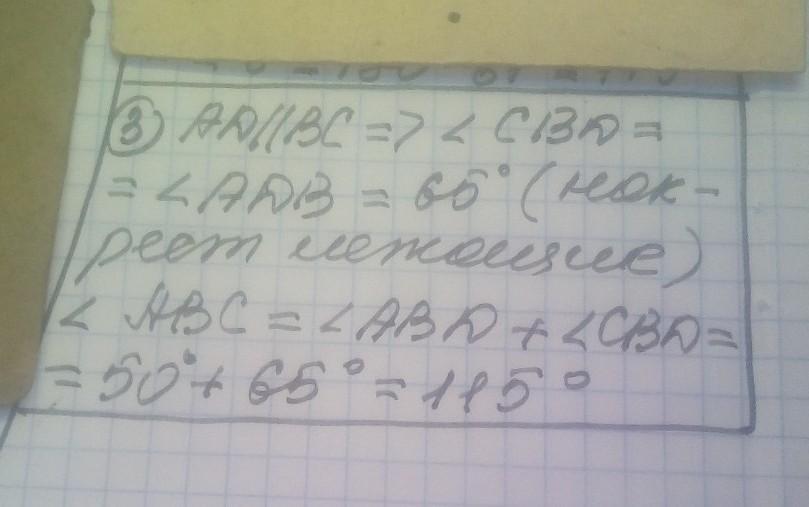 ③ AD||BC => < CBD =
= < ADB = 65° (нак-
рест лежащие)
< ABC = < ABD + < CBD =
= 50° + 65° = 115°